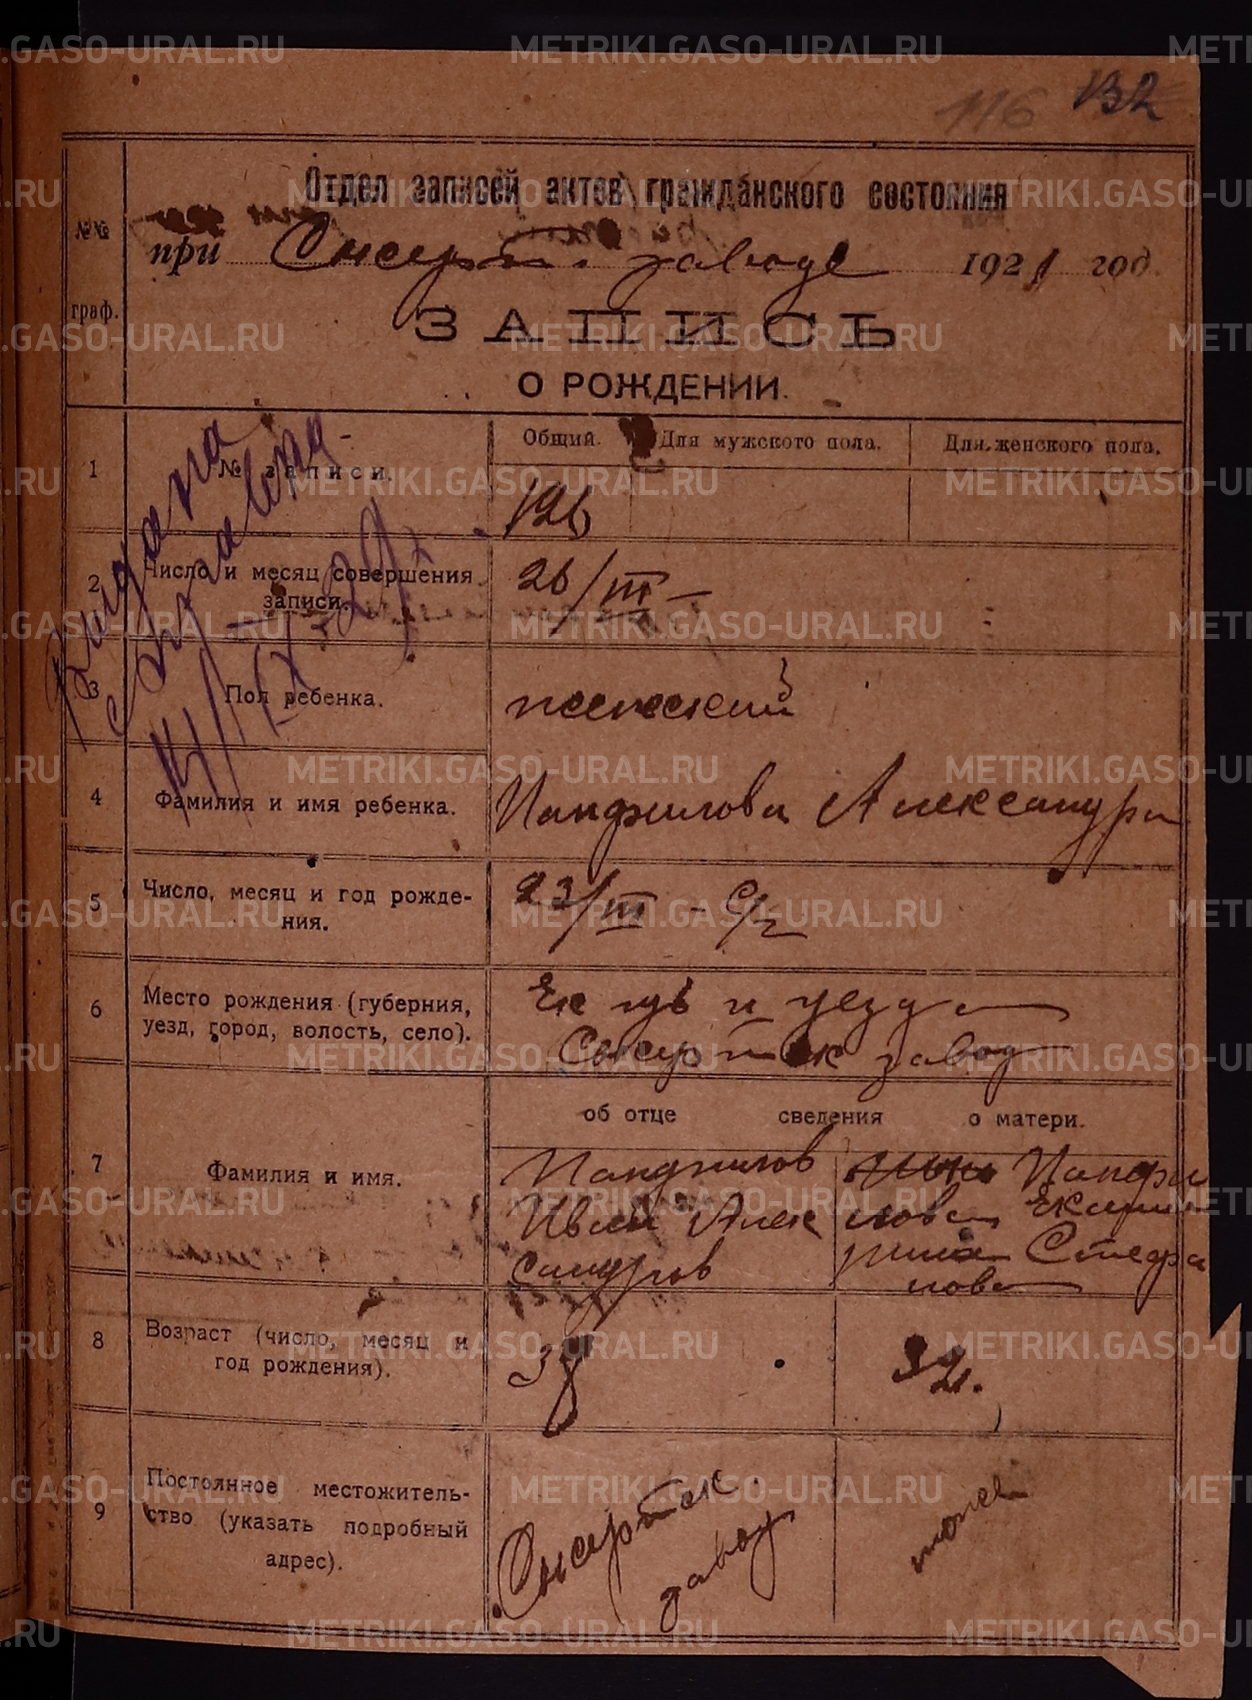 116 132
Отдел записей актов гражданского состояния
при Сысерт. заводе 1921 год.
№№
граф.
ЗАПИСЬ
О РОЖДЕНИИ.
Общий. Для мужского пола. Для женского пола.
1 № записи. 126
Выдана
справка
14/IX-29
2 Число и месяц совершения
записи. 26/III-
3 Пол ребенка. женский
4 Фамилия и имя ребенка. Панфилова Александра
5 Число, месяц и год рожде-
ния. 23/III - с/г
6 Место рождения (губерния, Ек губ и уезда
уезд, город, волость, село). Сысертск завод
об отце сведения о матери.
7 Фамилия и имя. Панфилов Панфи
Ивлий Алек лова Екате
сандров рина Стефа
нова
8 Возраст (число, месяц и
год рождения). 38 32.
9 Постоянное местожитель-
ство (указать подробный
адрес). Сысертск.
завод
тоже
METRIKI.GASO-URAL.RU